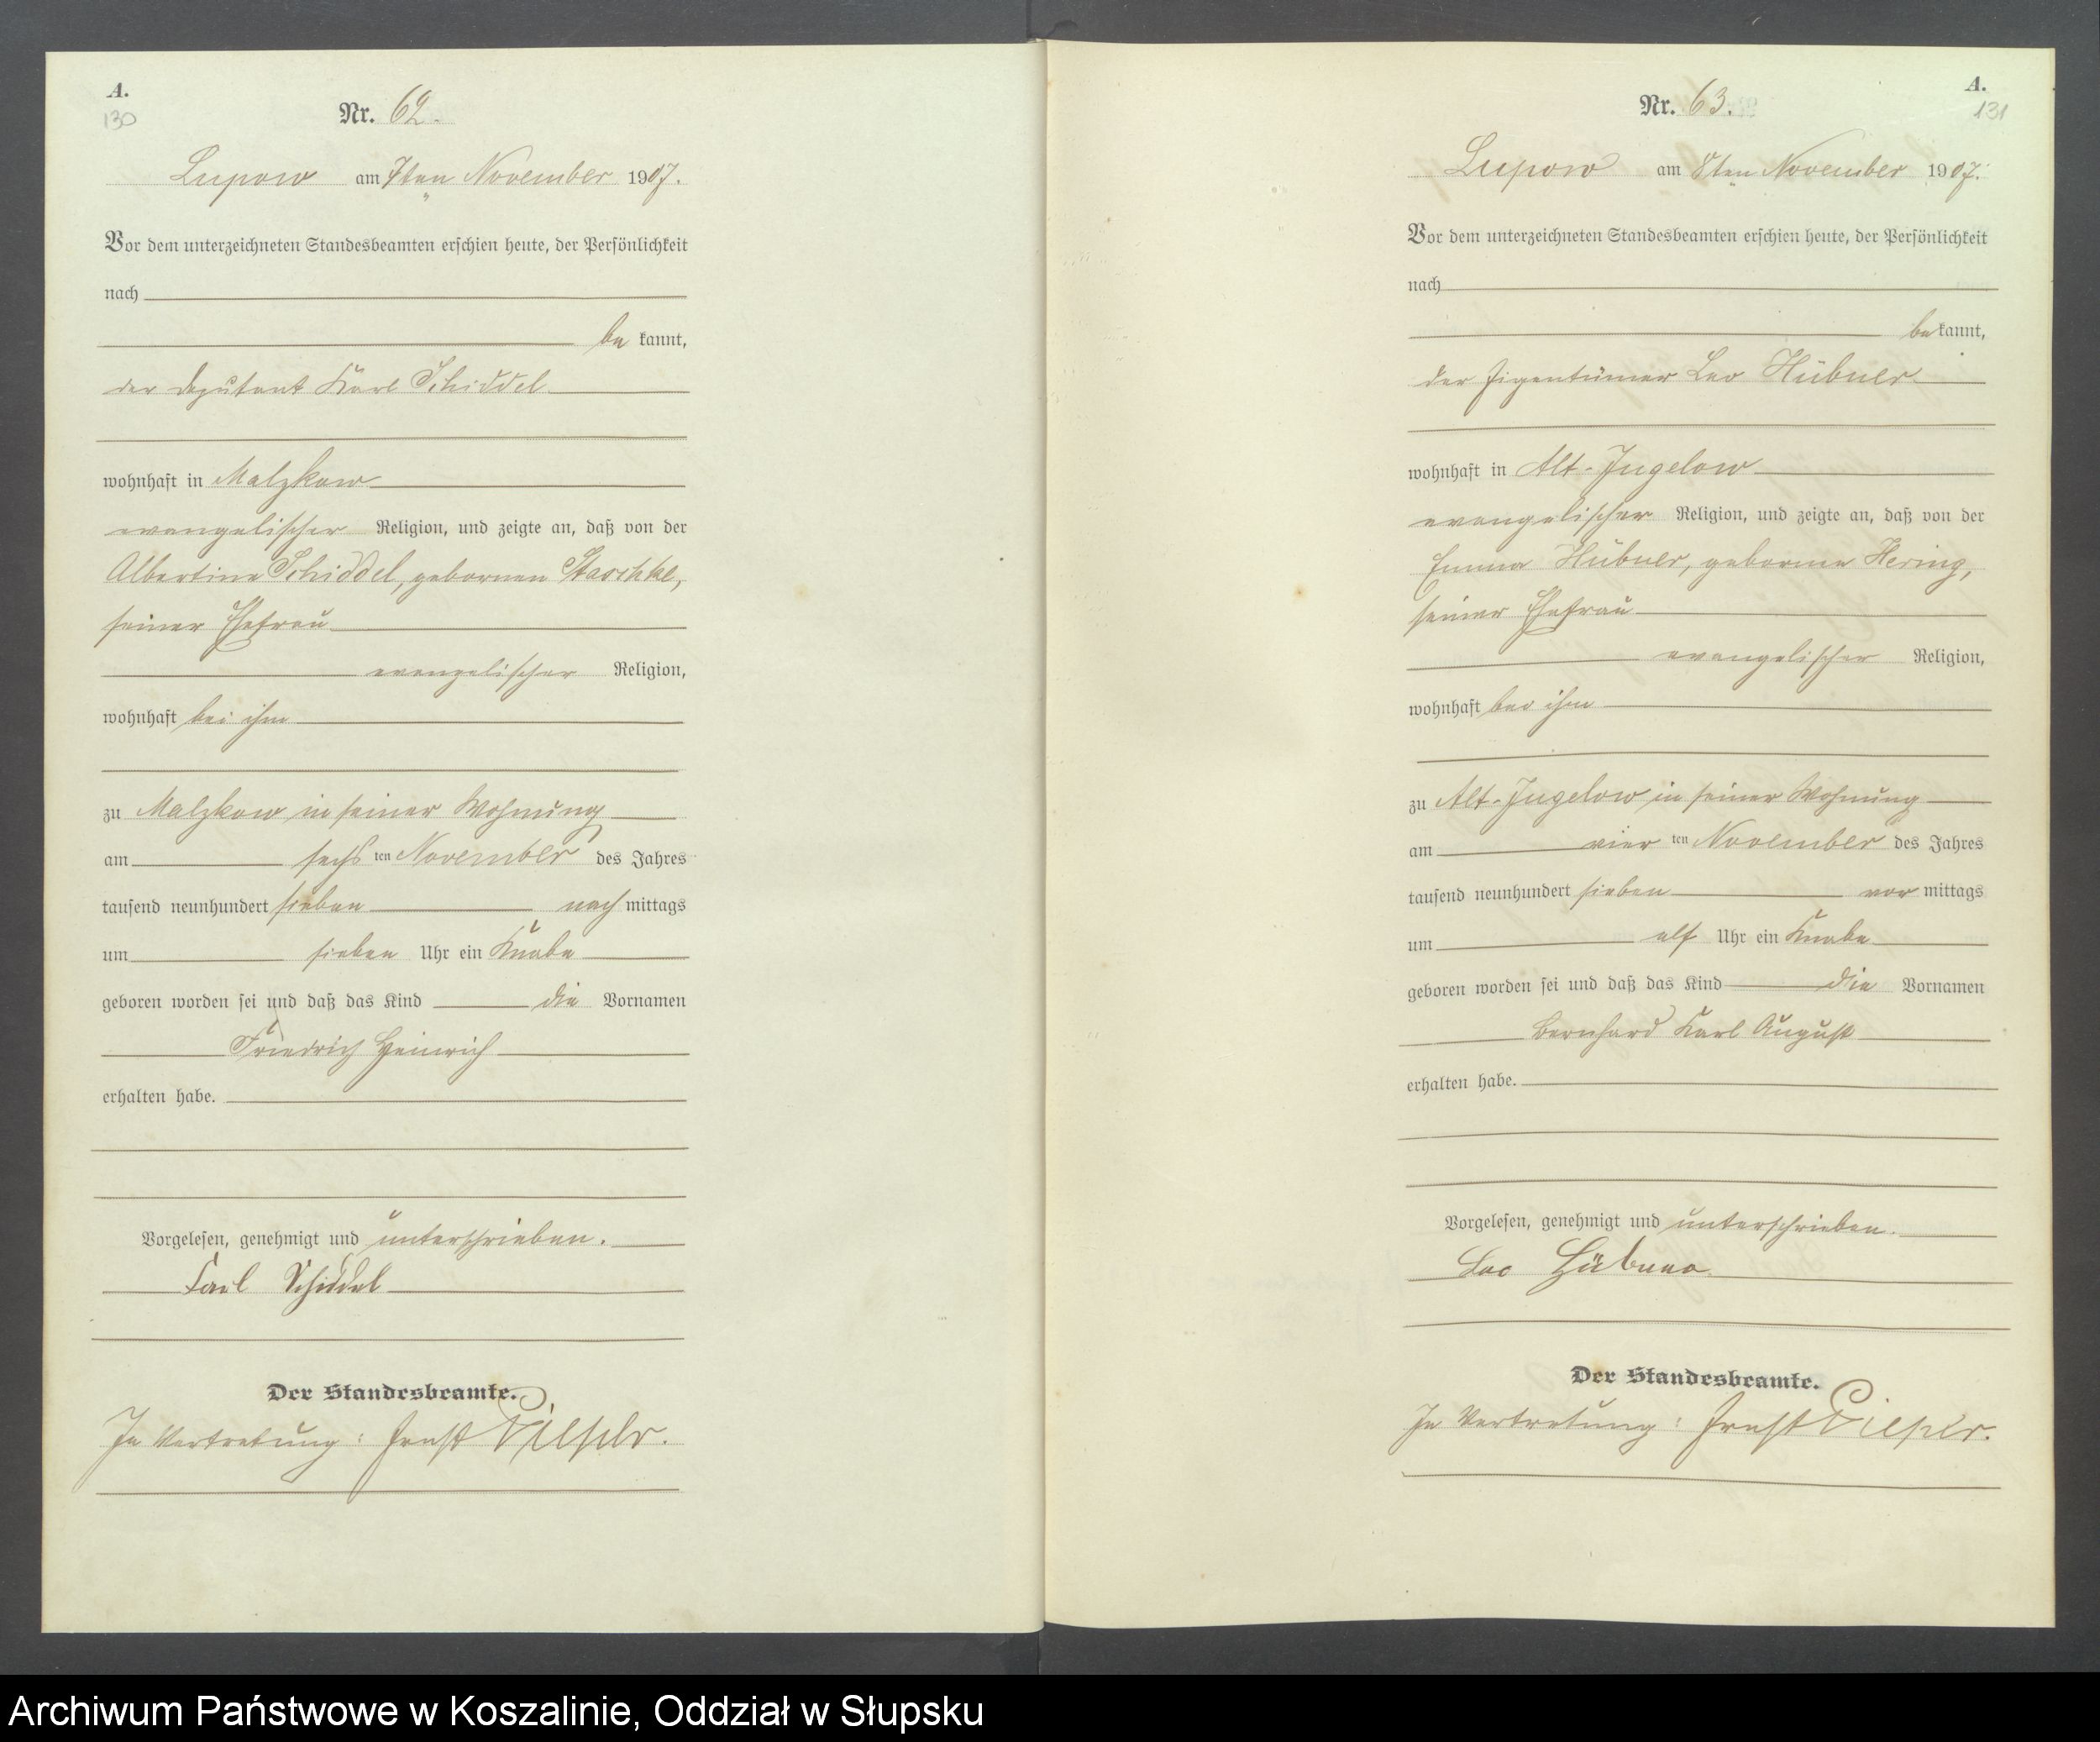 A.
130
Nr. 62.
Lupow am 7ten November 1907.
Vor dem unterzeichneten Standesbeamten erschien heute, der Persönlichkeit
nach
be kannt,
der Deputant Karl Schiddel
wohnhaft in Malzkow
evangelischer Religion, und zeigte an, daß von der
Albertine Schiddel, geborenen Staschke,
seiner Ehefrau
evangelischer Religion,
wohnhaft bei ihm
zu Malzkow in seiner Wohnung
am sechs ten November des Jahres
tausend neunhundert sieben nach mittags
um sieben Uhr ein Knabe
geboren worden sei und daß das Kind die Vornamen
Friedrich Heinrich
erhalten habe.
Vorgelesen, genehmigt und unterschrieben.
Karl Schiddel
Der Standesbeamte.
In Vertretung: Ernst Pilseler.
A.
131
Nr. 63.
Lupow am 8ten November 1907.
Vor dem unterzeichneten Standesbeamten erschien heute, der Persönlichkeit
nach
be kannt,
der Eigentümer Leo Hübner
wohnhaft in Alt-Jugelow
evangelischer Religion, und zeigte an, daß von der
Emma Hübner, geborene Hering,
seiner Ehefrau
evangelischer Religion,
wohnhaft bei ihm
zu Alt-Jugelow in seiner Wohnung
am vier ten November des Jahres
tausend neunhundert sieben vor mittags
um elf Uhr ein Knabe
geboren worden sei und daß das Kind die Vornamen
Bernhard Karl August
erhalten habe.
Vorgelesen, genehmigt und unterschrieben.
Leo Hübner
Der Standesbeamte.
In Vertretung: Ernst Pieper.
Archiwum Państwowe w Koszalinie, Oddział w Słupsku